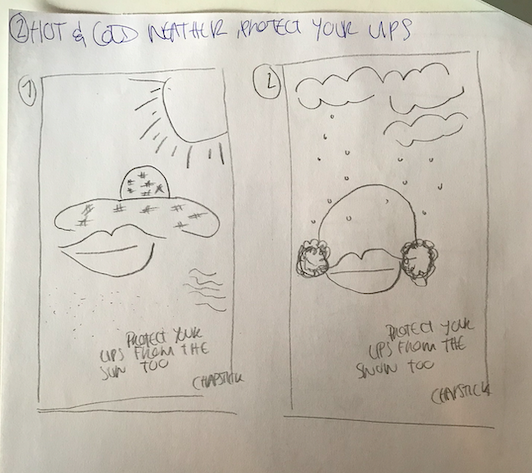 ② HOT & COLD WEATHER, PROTECT YOUR LIPS
1
2
PROTECT YOUR
LIPS FROM THE
SUN TOO
CHAPSTICK
PROTECT YOUR
LIPS FROM THE
SNOW TOO
CHAPSTICK